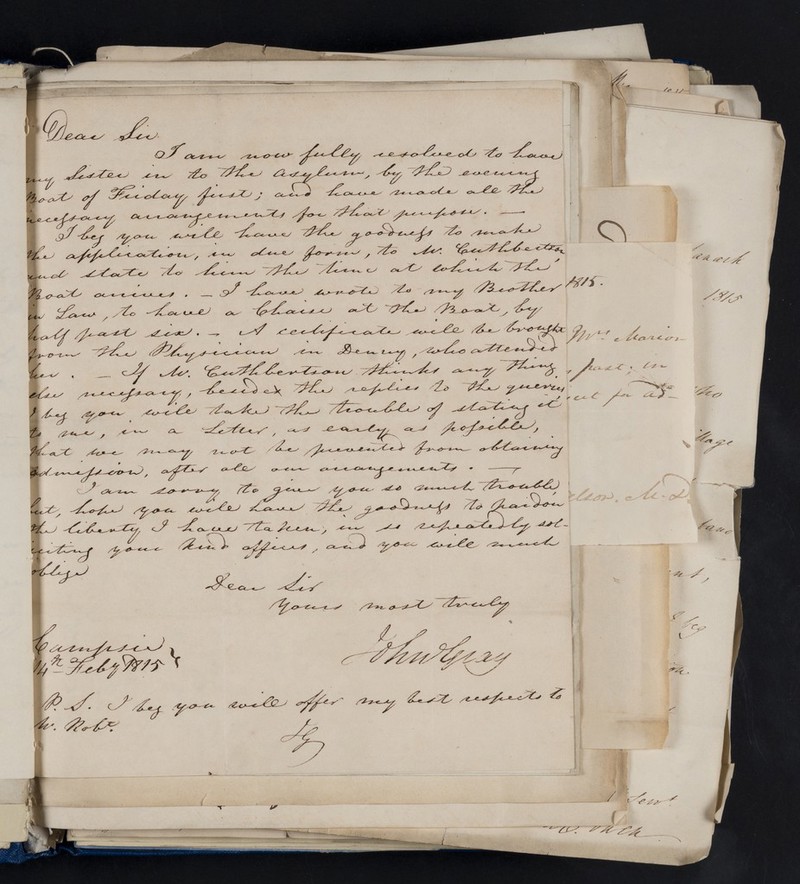 Dear Sir
I am now fully resolved to have
my Sister in to the Asylum, by the evening
Boat of Friday first; and have made all the
necessary arrangements for that purpose. —
I beg you will have the goodness to make
the application, in due form, to Mr. Cuthbertson
and state to him the time at which the
Boat arrives. — I have wrote to my Brother
in Law, to have a Chaise at the Boat, by
half past six. — A certificate will be brought
from the Physician in Denny, who attended
her. — If Mr. Cuthbertson thinks any thing
else necessary, besides the replies to the queries
I beg you will take the trouble of stating it
to me, in a Letter, as early as possible,
that we may not be prevented from obtaining
admission, after all our arrangements. —
I am sorry to give you so much trouble
but, hope you will have the goodness to pardon
the liberty I have taken, in so repeatedly sol-
iciting your kind offices, and you will much
oblige
Dear Sir
Yours most truly
Campsie
14th Feby 1815
John Gray
P.S. I beg you will offer my best respects to
Mr. Robt.
JG
1815.
Mrs Marion
past; in
elson, M.D.
anark
1815
llage